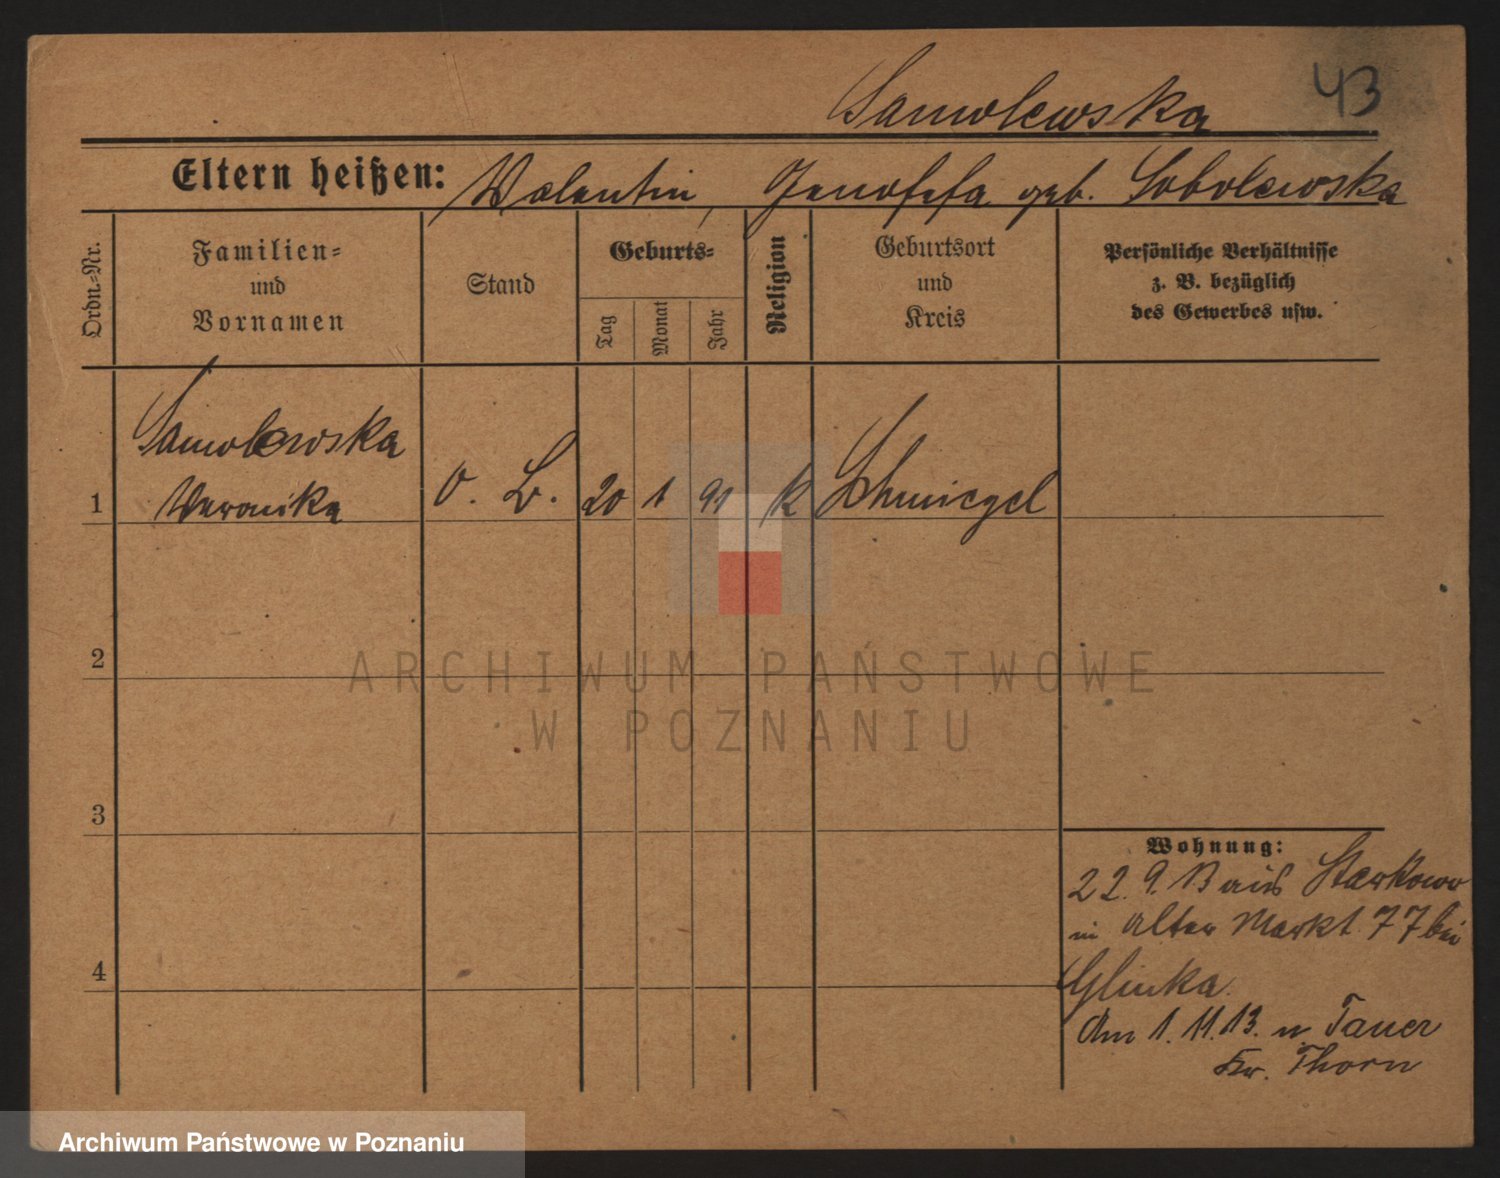 43
Samolewska
Eltern heißen: Valentin, Jenofefa geb. Sobolewska
Ordn.-Nr.
Familien-
und
Vornamen
Stand
Geburts-
Tag
Monat
Jahr
Religion
Geburtsort
und
Kreis
Persönliche Verhältnisse
z. B. bezüglich
des Gewerbes usw.
Samolewska
1 Veronika O. B. 20 1 91 k Schmiegel
2
3
4
Wohnung:
22. 9. 13 aus Starkowo
in Alter Markt 77 bei
Glinka.
Am 1. 11. 13. n. Tauer
Kr. Thorn
ARCHIWUM PAŃSTWOWE
W POZNANIU
Archiwum Państwowe w Poznaniu